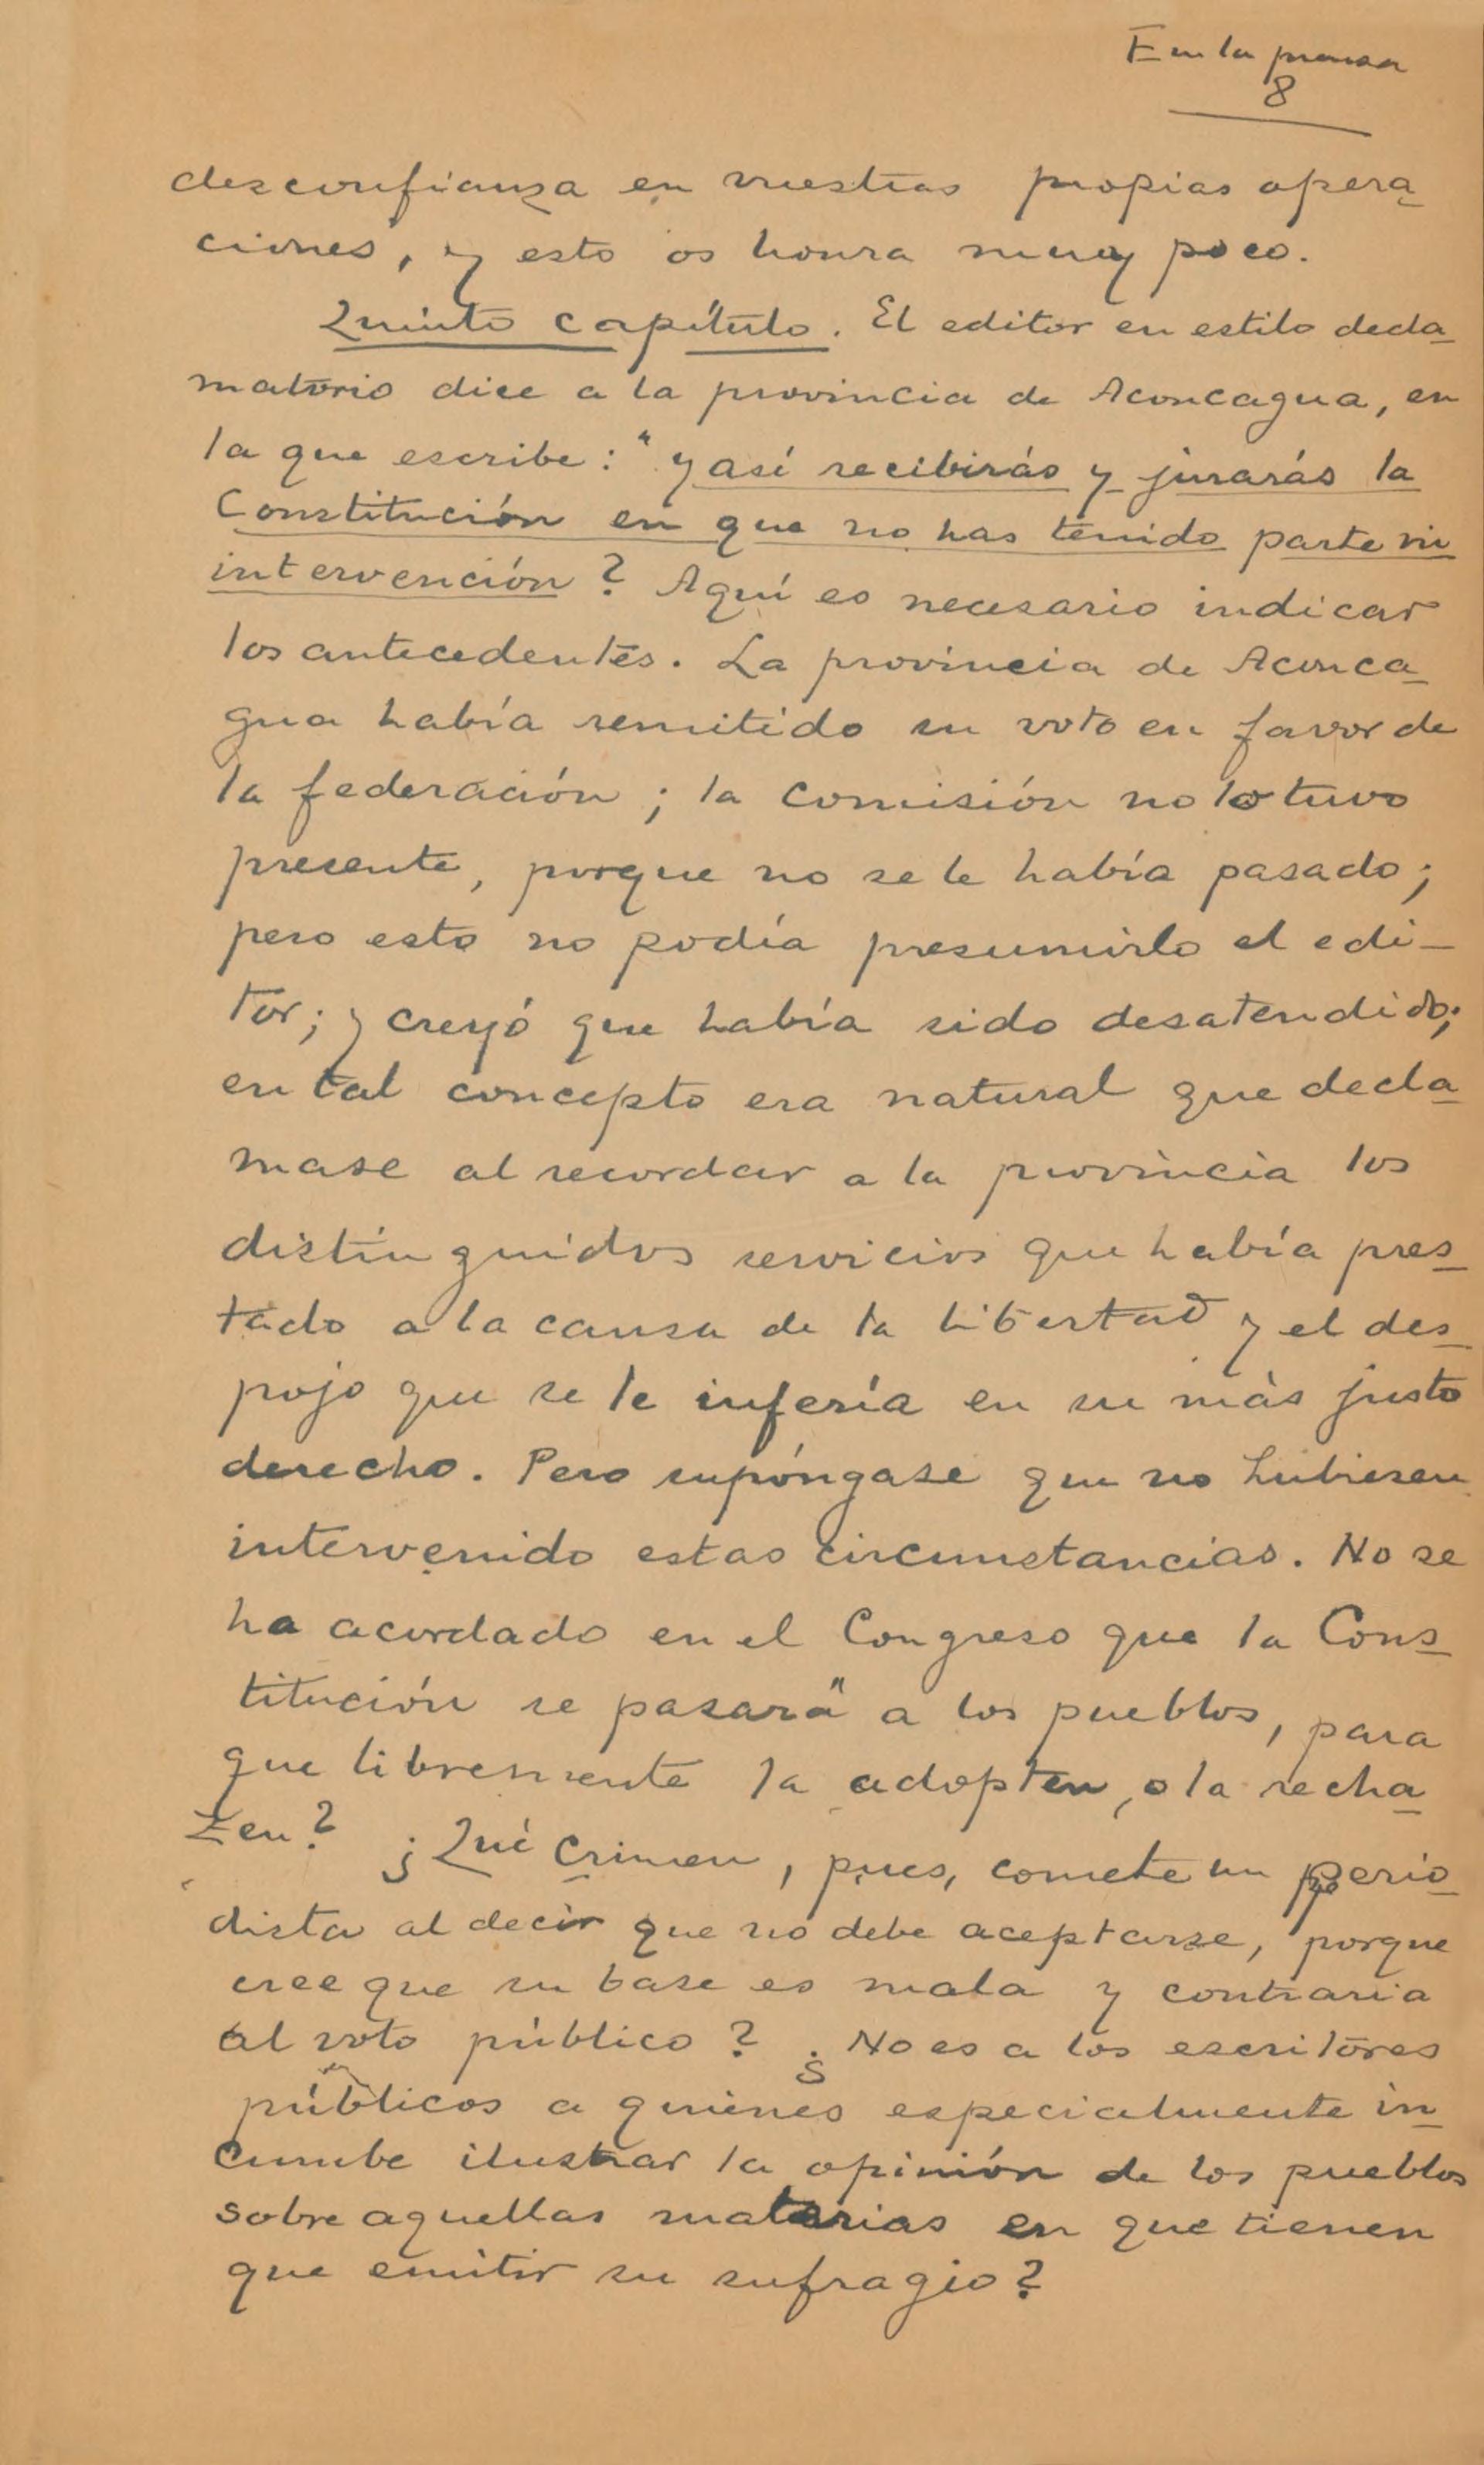 E en la prensa
8
desconfianza en vuestras propias opera
ciones, y esto os honra muy poco.
Quinto capítulo. El editor en estilo decla
matorio dice a la provincia de Aconcagua, en
la que escribe: "y así recibirás y jurarás la
Constitución en que no has tenido parte ni
intervención? Aquí es necesario indicar
los antecedentes. La provincia de Aconca
gua había remitido su voto en favor de
la federación; la Comisión no lo tuvo
presente, porque no se le había pasado;
pero esto no podía presumirlo el edi-
tor; y creyó que había sido desatendido;
en tal concepto era natural que decla
mase al recordar a la provincia los
distinguidos servicios que había pres
tado a la causa de la libertad y el des
pojo que se le infería en su más justo
derecho. Pero supóngase que no hubiesen
intervenido estas circunstancias. No se
ha acordado en el Congreso que la Cons
titución se pasará" a los pueblos, para
que libremente la adopten, o la recha
zen? ¿Qué crimen, pues, comete un perio
dista al decir que no debe aceptarse, porque
cree que su base es mala y contraria
al voto público? ¿No es a los escritores
públicos a quienes especialmente in
cumbe ilustrar la opinión de los pueblos
sobre aquellas materias en que tienen
que emitir su sufragio?